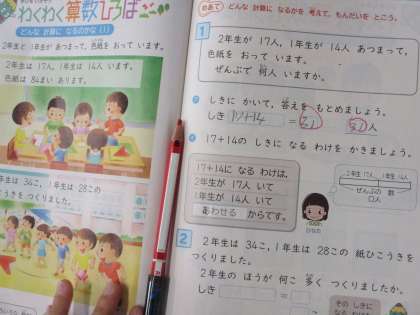 わくわく算数ひろば
どんな 計算に なるのかな (1)
2年生と 1年生が あつまって、色紙を おって います。
2年生は 17人、1年生は 14人 います。
色紙は 84まい あります。
2年生は 34こ、1年生は 28この
紙ひこうきを つくりました。
めあて どんな 計算に なるかを 考えて、もんだいを とこう。
1
2年生が 17人、1年生が 14人 あつまって、
色紙を おって います。
ぜんぶで 何人 いますか。
しきに かいて、答えを もとめましょう。
しき 17+14 = 31 31 人
17+14の しきに なる わけを かきましょう。
17+14に なる わけは、
2年生が 17人 いて
1年生が 14人 いて
あわせる からです。
2年生 17人 1年生 14人
ぜんぶの
□人
ひなた
2
2年生は 34こ、1年生は 28この 紙ひこうきを
つくりました。
2年生の ほうが 何こ 多く つくりましたか。
しき =
その しきに
なる わけは